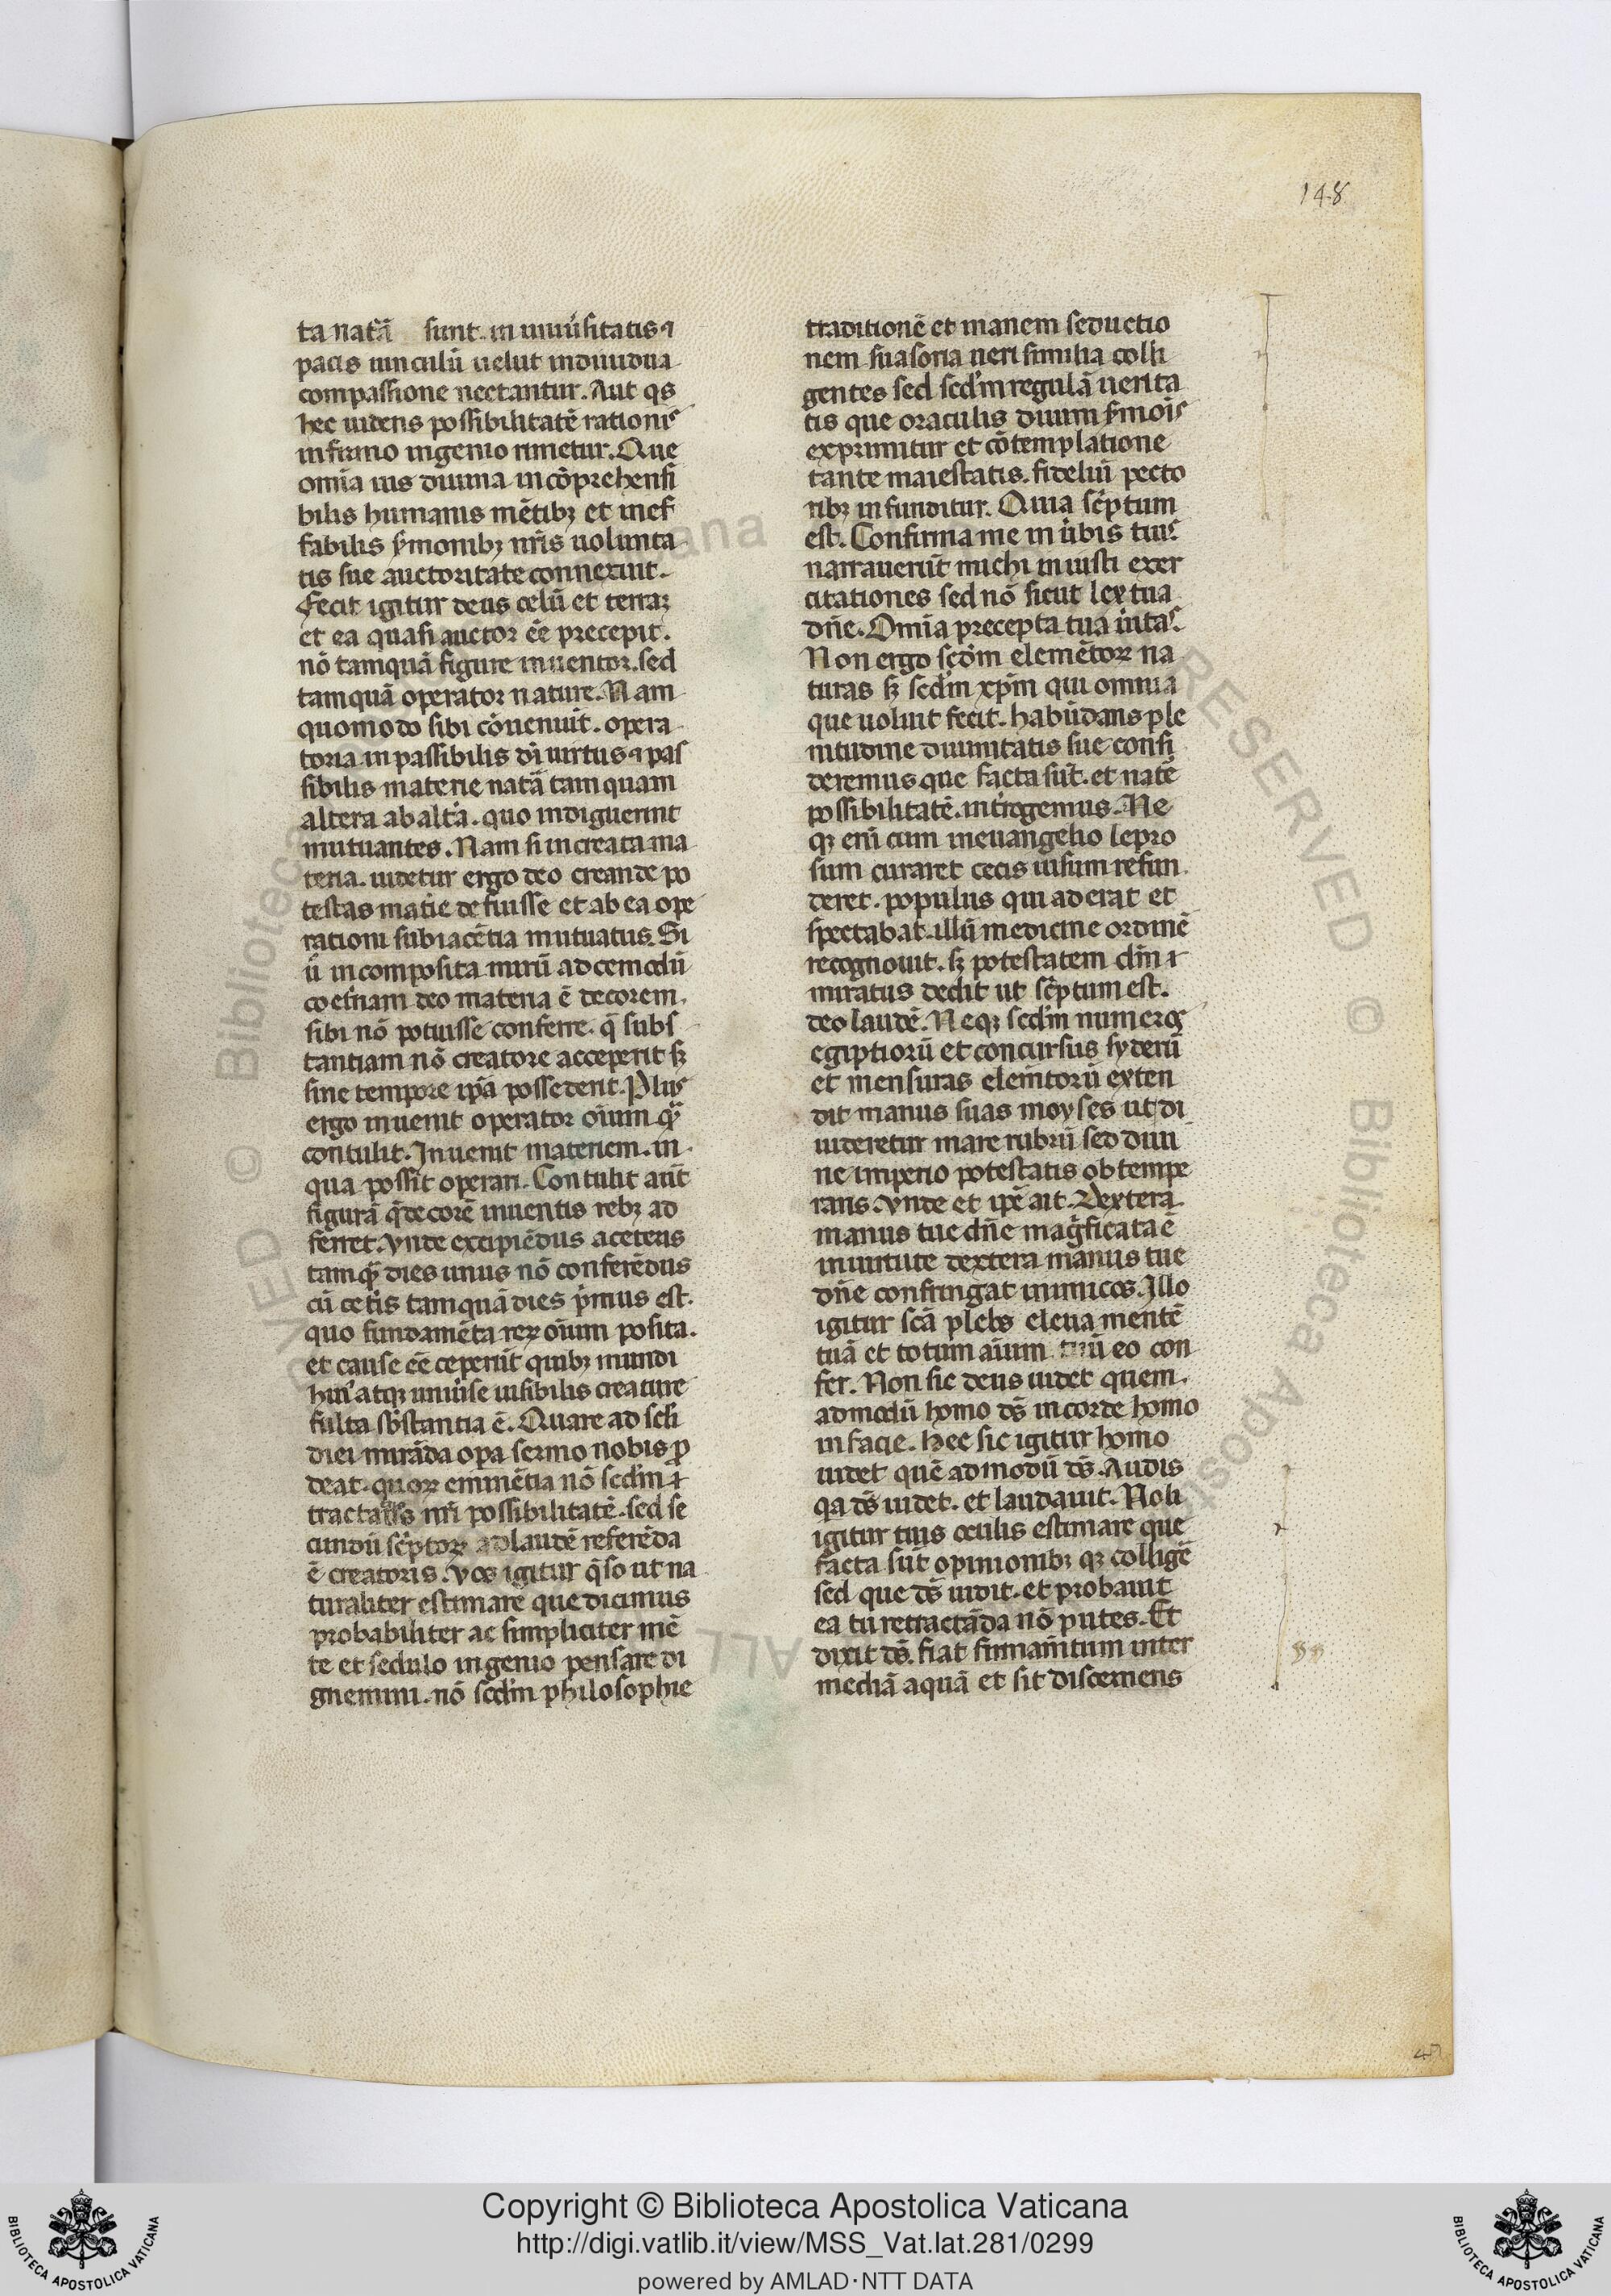 148
ta natã sunt. in uniu͛sitatis ⁊
pacis uinculũ uelut indiuidua
compassione nectantur. Aut qͥs
hec uidens possibilitatẽ rationis
infirmo ingenio rimetur. Que
omĩa uis diuina incõprehensi
bilis humanis mẽtibꝫ et inef
fabilis s̃monibꝫ nr̃is uolunta
tis sue auctoritate connexuit.
Fecit igitur deus celũ et terraꝫ
et ea quasi auctor ẽe precepit.
nõ tamquã figure inuentor. sed
tamquã operator nature. Nam
quomodo sibi cõuenuit. opera
toria inpassibilis dĩ uirtus ⁊ pas
sibilis materie natã tamquam
altera ab alt͛a. quo indiguerint
mutuantes. Nam si increata ma
teria. uidetur ergo deo creande po
testas mat͛ie defuisse et ab ea ope
rationi subiacẽtia mutuatus. Si
u͛ incomposita mirũ admodũ
coet͛nam deo materia ẽ decorem.
sibi nõ potuisse conferre. q̃ subs
tantiam nõ creatore acceperit sꝫ
sine tempore ip̃a possederit. Plus
ergo inuenit operator oĩum qᷓ
contulit. Inuenit materiem. in
qua possit operari. Contulit aũt
figurã q̃ decorẽ inuentis rebꝫ ad
ferret. Vnde excipiẽdus a ceteris
tamqᷓ dies unus nõ conferẽdus
cũ cet͛is tamquã dies p̃mus est.
quo fundamẽta reꝝ oĩum posita.
et cause ẽe ceperũt quibꝫ mundi
hui᷒ atqꝫ uniu͛se uisibilis creature
fulta sb̃stantia ẽ. Quare ad scd̃i
diei mirãda oꝑa sermo nobis ꝓ
deat. quoꝝ eminẽtia nõ scd̃m
tractatus nr̃i possibilitatẽ. sed se
cundũ sc͛ptoꝝ ad laudẽ referẽda
ẽ creatoris. Vos igitur q̃so ut na
turaliter estimare que dicimus
probabiliter ac simpliciter mẽ
te et sedulo ingenio pensare di
gnemini. nõ scd̃m philosophie
traditionẽ et inanem seductio
nem suasoria ueri similia colli
gentes sed scd̃m regulã uerita
tis que oraculis diuini s̃mois
exprimitur et cõtemplatione
tante maiestatis. fideliũ pecto
ribꝫ infunditur. Quia sc͛ptum
est. Confirma me in u͛bis tuis
narrauerũt michi iniusti exer
citationes sed nõ sicut lex tua
dñe. Omĩa precepta tua u͛itas.
Non ergo scd̃m elemẽtoꝝ na
turas sꝫ scd̃m xp̃m qui omnia
que uoluit fecit. habũdans ple
nitudine diuinitatis sue consi
deremus que facta sũt. et natẽ
possibilitatẽ. int͛rogemus. Ne
qꝫ enĩ cum in euangelio lepro
sum curaret cecis uisum refun
deret. populus qui aderat et
spectabat. illũ medicine ordinẽ
recognouit. sꝫ potestatem dñi
miratus dedit ut sc͛ptum est.
deo laudẽ. Neqꝫ scd̃m numeros
egiptiorũ et concursus syderũ
et mensuras elem̃torũ exten
dit manus suas moyses ut di
uideretur mare rubrũ sed diui
ne imperio potestatis obtempe
rans. Vnde et ip̃e ait. Dextera
manus tue dñe mag̃ficata ẽ
in uirtute dextera manus tue
dñe confringat inimicos. Illo
igitur scã plebs eleua mentẽ
tuã et totum aĩum tuũ eo con
fer. Non sic deus uidet quem
admodũ homo ds̃ in corde homo
in facie. Hec sic igitur homo
uidet quẽ admodũ ds̃. Audis
qͣ ds̃ uidet. et laudauit. Noli
igitur tuis oculis estimare que
facta sũt opinionibꝫ qꝫ colligẽ
sed que ds̃ uidit. et probauit
ea tu retractãda nõ putes. Et
dixit ds̃. fiat firmam̃tum inter
mediã aquã et sit discernens
Copyright © Biblioteca Apostolica Vaticana
http://digi.vatlib.it/view/MSS_Vat.lat.281/0299
powered by AMLAD·NTT DATA
BIBLIOTECA APOSTOLICA VATICANA
BIBLIOTECA APOSTOLICA VATICANA